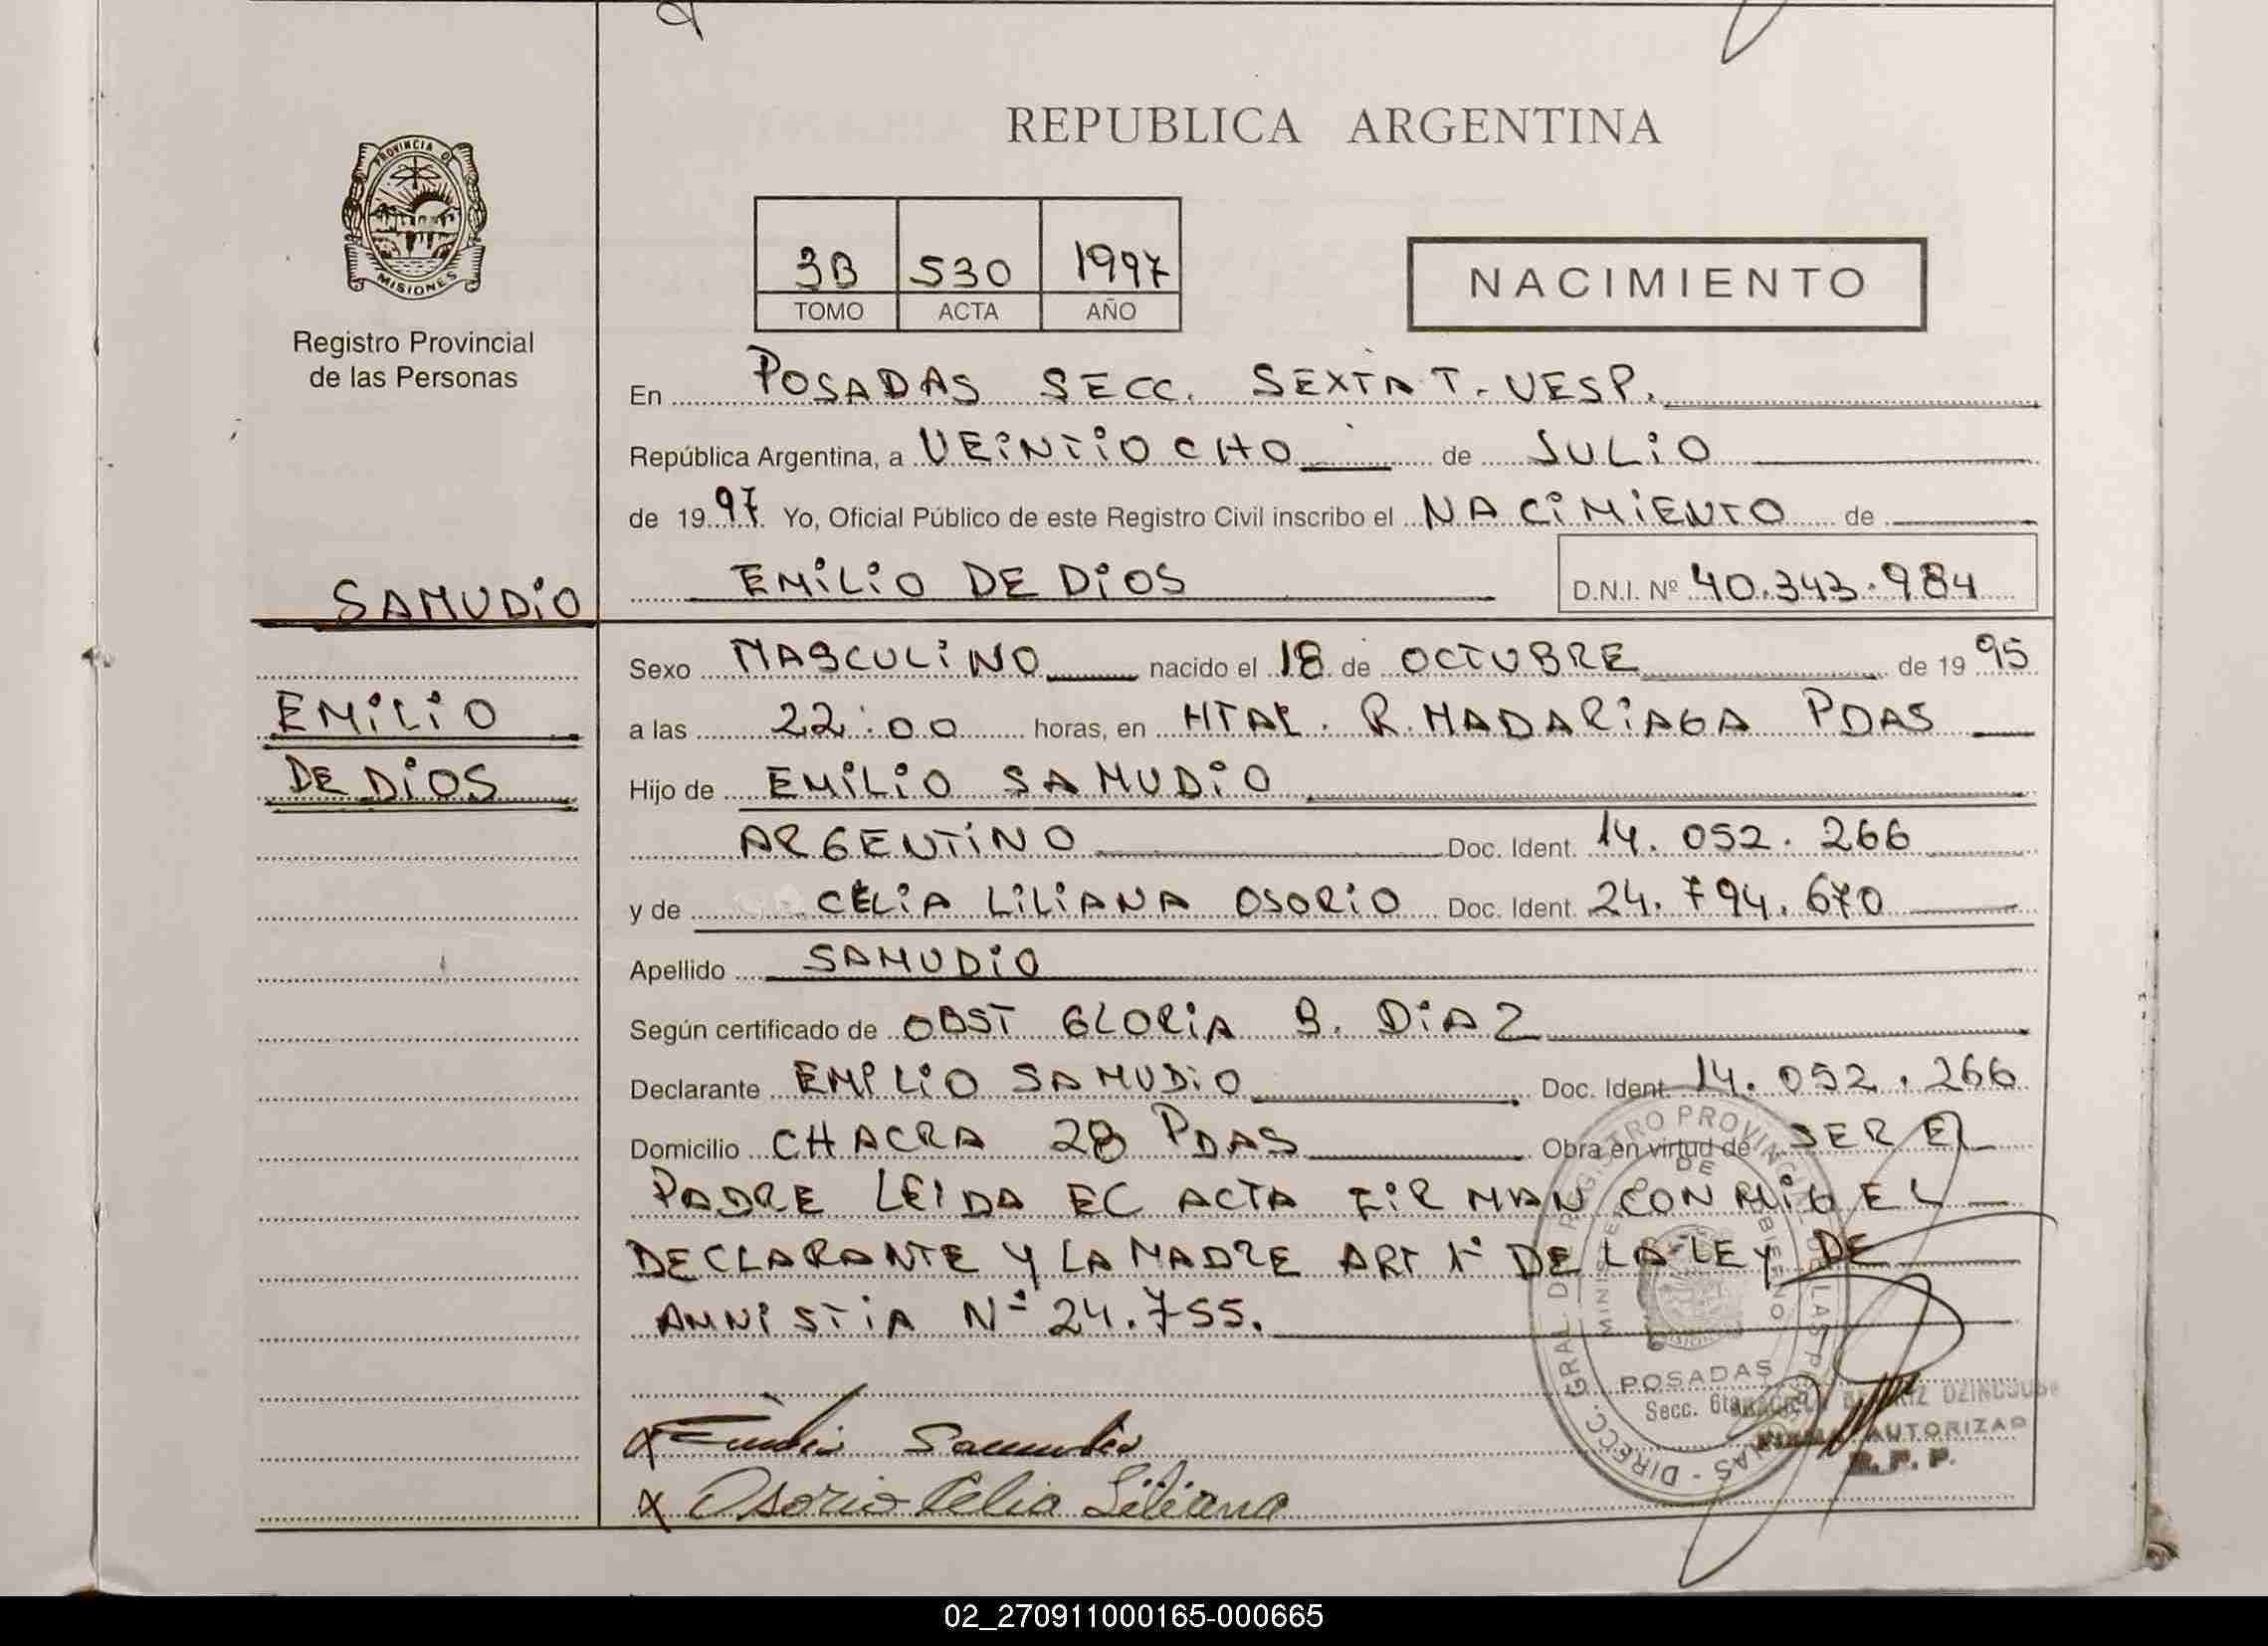 REPUBLICA ARGENTINA
PROVINCIA DE
MISIONES
Registro Provincial
de las Personas
3B 530 1997
TOMO ACTA AÑO
NACIMIENTO
En POSADAS SECC. SEXTA T. VESP.
República Argentina, a VEINTIOCHO de JULIO
de 1997 Yo, Oficial Público de este Registro Civil inscribo el NACIMIENTO de
SAMUDIO
EMILIO DE DIOS D.N.I. Nº 40.343.984
Sexo MASCULINO nacido el 18 de OCTUBRE de 1995
EMILIO
a las 22:00 horas, en HTAL. R. MADARIAGA PDAS
DE DIOS
Hijo de EMILIO SAMUDIO
ARGENTINO Doc. Ident. 14.052.266
y de CELIA LILIANA OSORIO Doc. Ident. 24.794.670
Apellido SAMUDIO
Según certificado de OBST GLORIA B. DIAZ
Declarante EMILIO SAMUDIO Doc. Ident. 14.052.266
Domicilio CHACRA 28 PDAS Obra en virtud de SER EL
PADRE LEIDA EL ACTA FIRMAN CONMIGO EL
DECLARANTE Y LA MADRE ART 1º DE LA LEY DE
AMNISTIA Nº 24.755.
POSADAS
Secc. 6ta
AUTORIZAD
R.P.P.
Emilio Samudio
Osorio Celia Liliana
02_270911000165-000665